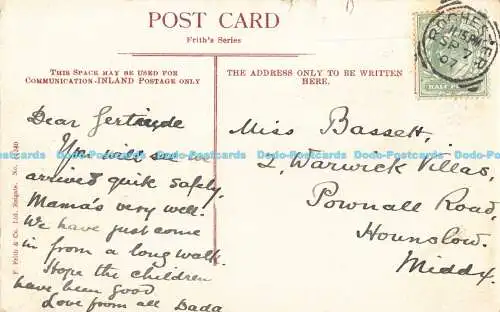 POST CARD
Frith's Series
THIS SPACE MAY BE USED FOR
COMMUNICATION-INLAND POSTAGE ONLY
THE ADDRESS ONLY TO BE WRITTEN
HERE.
ROCHESTER
SP 7
07
HALF PENNY
Dear Gertrude
You will see we
arrived quik safely.
Mama's very well.
We have just come
in from a long walk.
Hope the children
have been good
Love from all Dada
Miss Bassett,
2, Warwick Villas,
Pownall Road,
Hounslow.
Middx.
F. Frith & Co. Ltd. Reigate. No.
Dodo-Postcards Dodo-Postcards Dodo-Postcards Dodo-Postcards